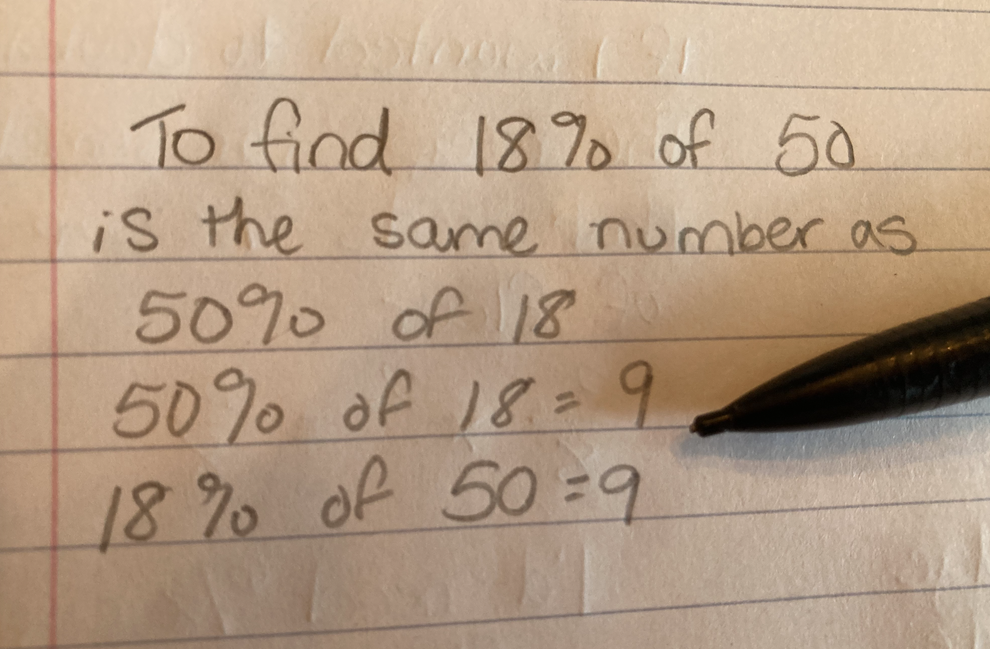 To find 18% of 50
is the same number as
50% of 18
50% of 18 = 9
18% of 50 = 9